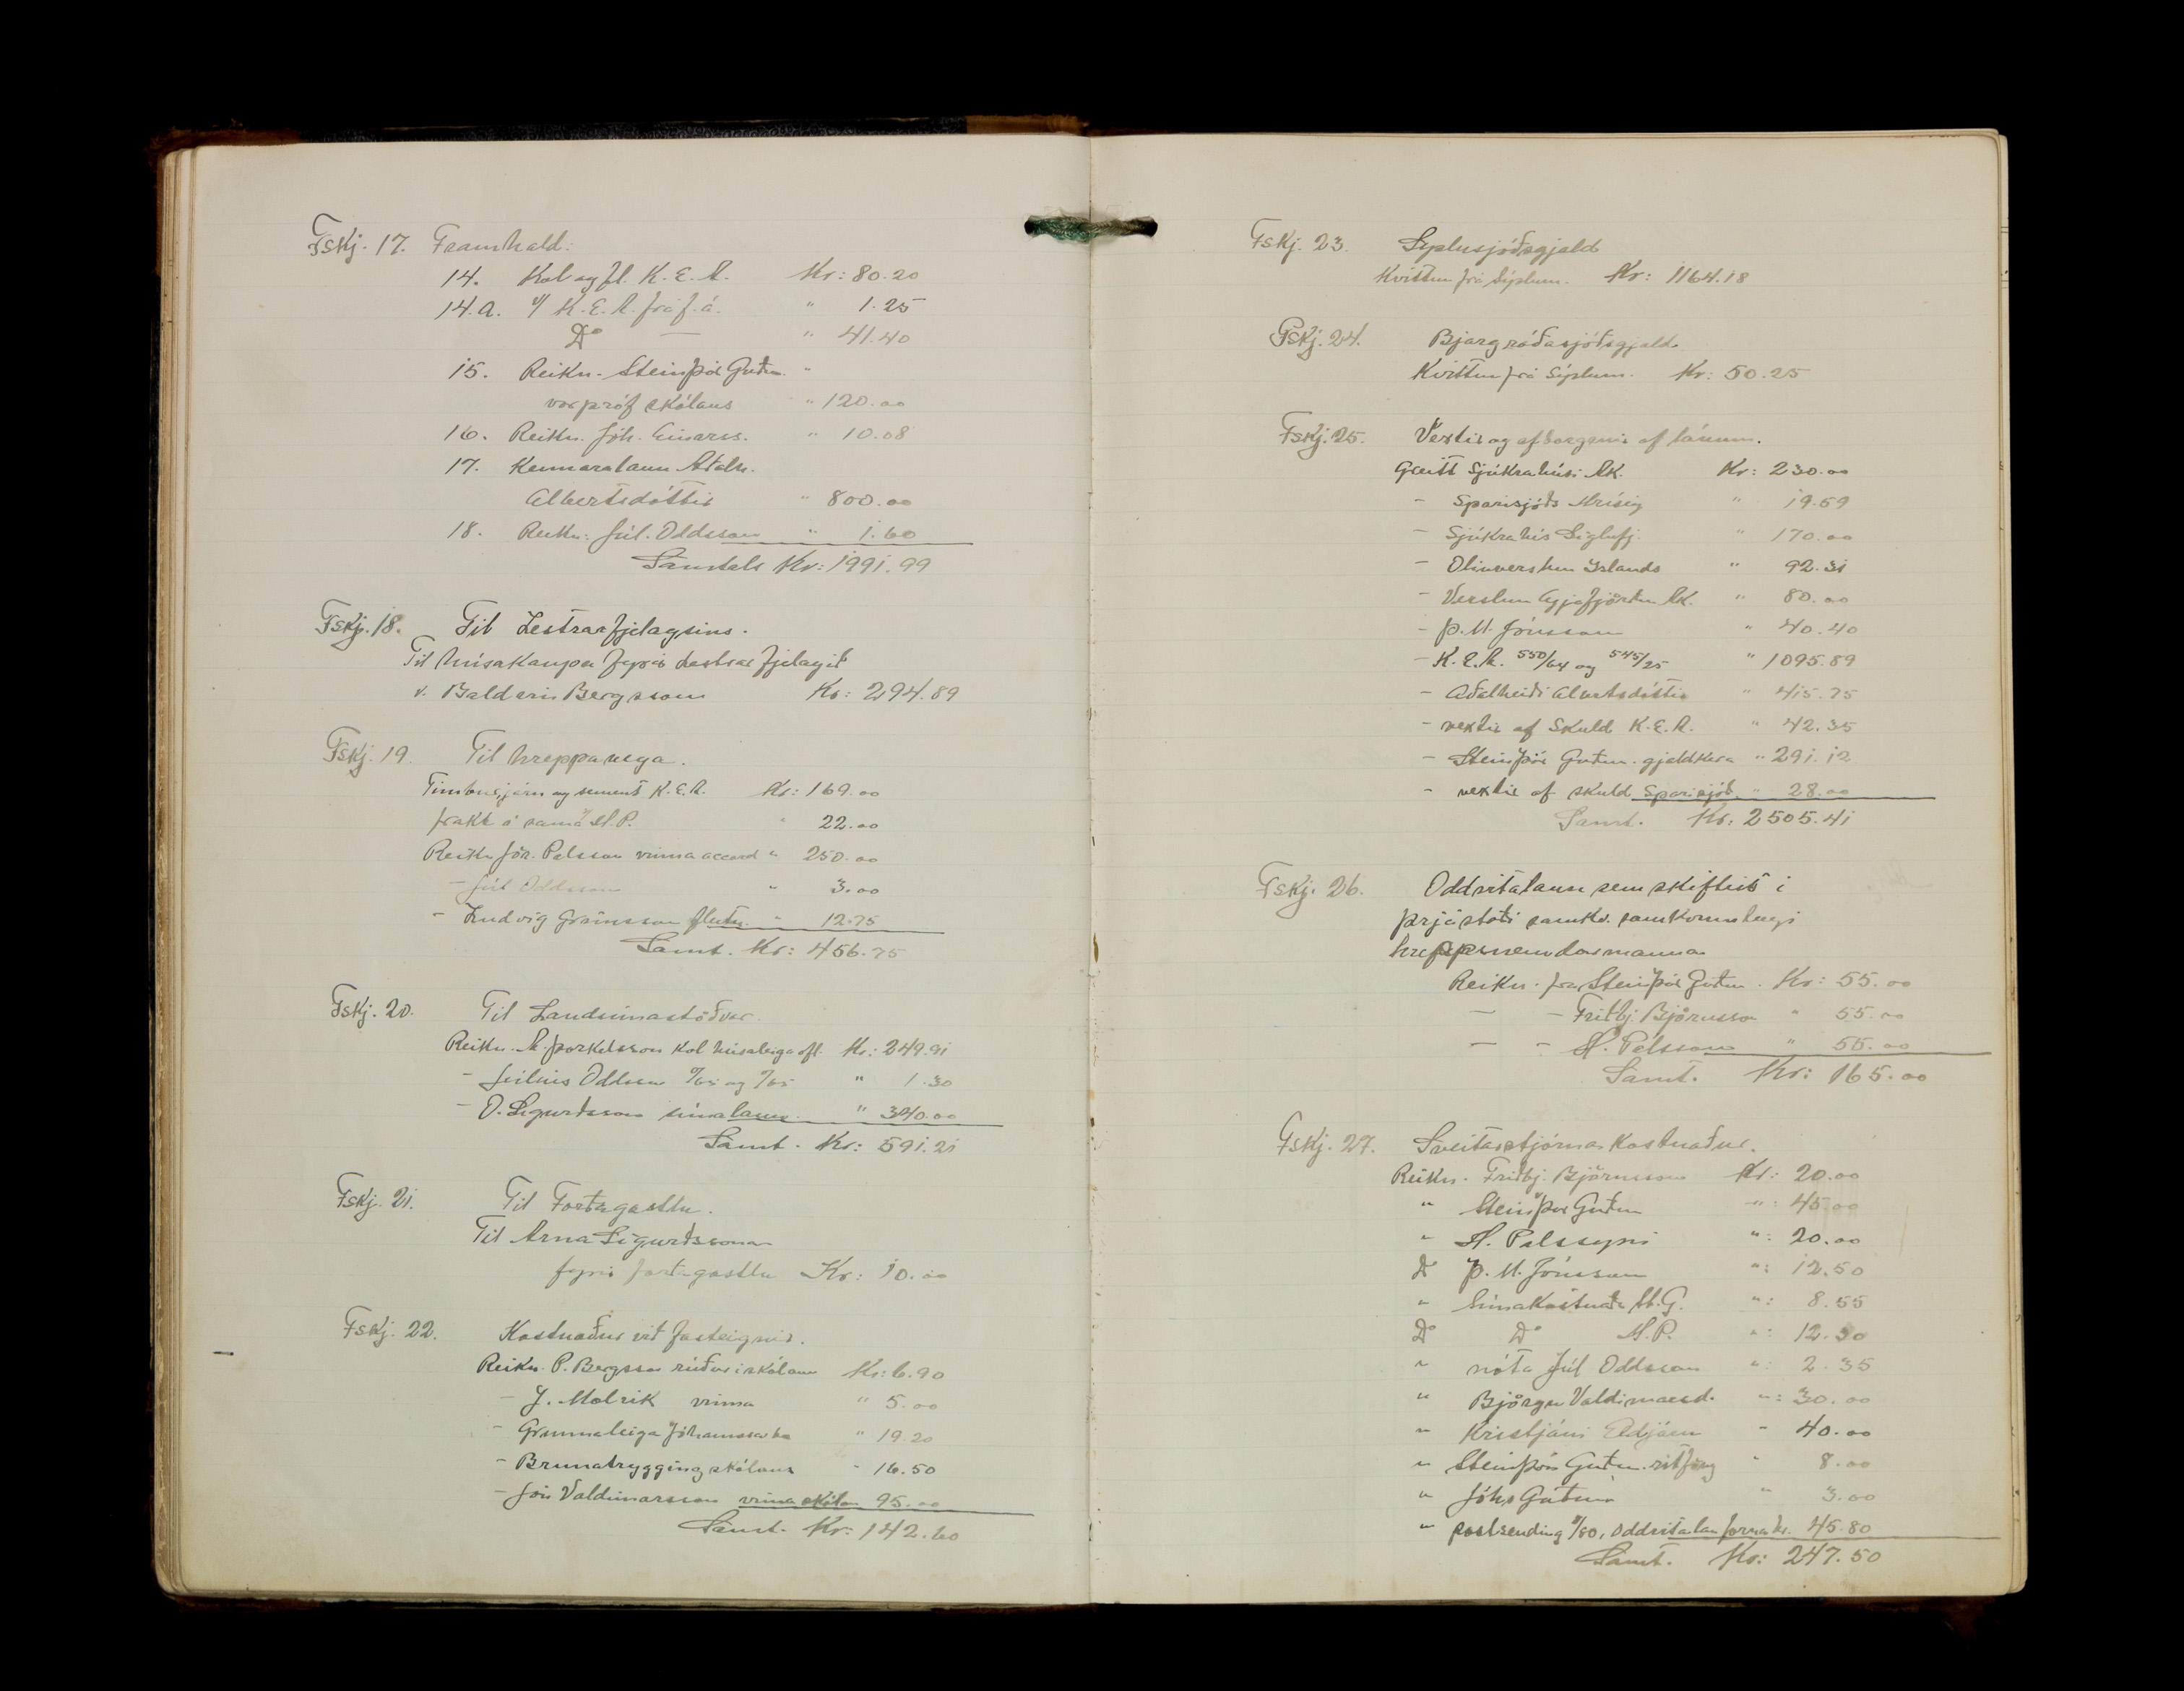 Fskj. 17. Framhald:
14. Kol og fl. K.E.A. Kr: 80.20
14.a. K.E.A. frá f.á. " 1.25
Do — " 41.40
15. Reikn. Steinþór Guðm. "
vorpróf skólans " 120.00
16. Reikn. Jóh. Einarss. " 10.08
17. Kennaralaun Aðalh.
Albertsdóttir " 800.00
18. Reikn. Júl. Oddsson " 1.60
Samtals Kr: 1991.99
Fskj. 18. Til Lestrarfjelagsins.
Til húsakaupa fyrir lestrarfjelagið
v. Baldvin Bergsson Kr: 294.89
Fskj. 19. Til hreppavega.
Timbur, járn og sement K.E.A. Kr: 169.00
frakt á sama H.P. " 22.00
Reikn Jón. Pálsson vinna accord " 250.00
- Júl Oddsson " 3.00
- Ludvig Grímsson flutn. " 12.75
Samt. Kr: 456.75
Fskj. 20. Til Landsímastöðvar.
Reikn. Á. Þorkelsson kol húsaleiga ofl. Kr: 249.91
- Júlíus Oddsson og " 1.30
- O. Sigurðsson símalaun. " 340.00
Samt. Kr: 591.21
Fskj. 21. Til Forðagæslu.
Til Árna Sigurðssonar
fyrir forðagæslu Kr: 10.00
Fskj. 22. Kostnaður við fasteignir.
Reikn. P. Bergsson rúður í skólann Kr: 6.90
- J. Malrik vinna " 5.00
- Grunnaleiga Jóhannssonar " 19.20
- Brunatrygging skólans " 16.50
- Jón Valdimarsson vinna skólan 95.00
Samt. Kr: 142.60
Fskj. 23. Sýslusjóðsgjald
Kvittun frá Sýslum. Kr: 1164.18
Fskj. 24. Bjargráðasjóðsgjald
Kvittun frá Sýslum. Kr: 50.25
Fskj. 25. Vextir og afborganir af lánum.
Greitt Sjúkrahúsi Ak. Kr: 230.00
- Sparisjóðs Hríseig " 19.59
- Sjúkrahús Siglufj. " 170.00
- Olíuverslun Íslands " 92.31
- Verslun Eyjafjörður Ak. " 80.00
- Þ.M. Jónsson " 40.40
- K.E.A. 550/64 og 545/25 " 1095.89
- Aðalheiði Albertsdóttir " 415.75
- vextir af skuld K.E.A. " 42.35
- Steinþór Guðm. gjaldkera " 291.12
- vextir af skuld Sparisjóð " 28.00
Samt. Kr: 2505.41
Fskj. 26. Oddvitalaun sem skiftist í
þrjá staði samkv. samkomulagi
hreppsnendarmanna
Reikn. frá Steinþór Guðm. Kr: 55.00
— - Friðbj. Björnsson " 55.00
— - H. Pálsson " 55.00
Samt. Kr: 165.00
Fskj. 27. Sveitarstjórnarkostnaður.
Reikn. Friðbj. Björnsson Kr: 20.00
" Steinþór Guðm " : 45.00
" H. Pálssyni " : 20.00
Do Þ.M. Jónsson " : 12.50
" Símakostnaður St.G. " : 8.55
Do Do H.P. " : 12.30
" nóta Júl Oddsson " : 2.35
" Björgu Valdimarsd. " : 30.00
" Kristjáni Eldjárn - 40.00
" Steinþór Guðm. ritföng " 8.00
" Jóhs Guðmu " 3.00
" póstsending /80, Oddvitalaun 45.80
Samt. Kr: 247.50